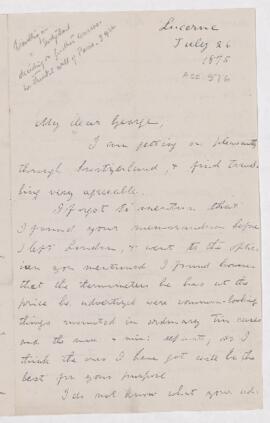 Lucerne
July 26
1875
My dear George,
I am getting on pleasantly
through Switzerland, & find travel-
ling very agreeable.
I forgot to mention that
I found your memorandum before
I left London, & went to the optic-
ian you mentioned. I found however
that the thermometers he has at the
price he advertized were common-looking
things mounted in ordinary tin cases
and the max & mini separate, so I
think the ones I have got will be the
best for your purpose.
I do not know what your ad-